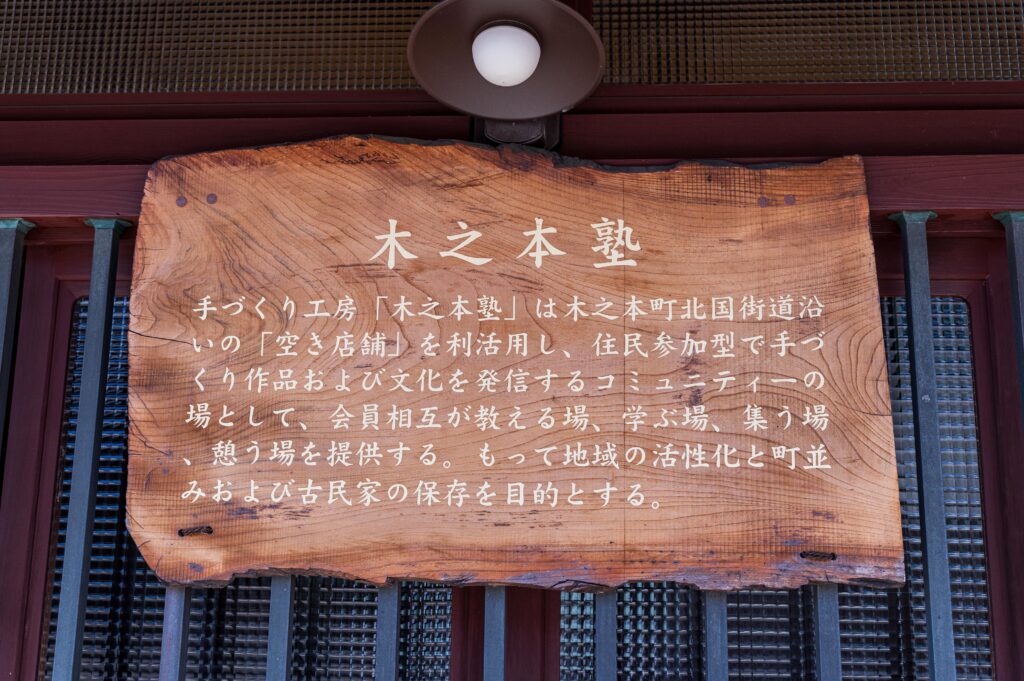 木之本塾
手づくり工房「木之本塾」は木之本町北国街道沿
いの「空き店舗」を利活用し、住民参加型で手づ
くり作品および文化を発信するコミュニティーの
場として、会員相互が教える場、学ぶ場、集う場
、憩う場を提供する。もって地域の活性化と町並
みおよび古民家の保存を目的とする。